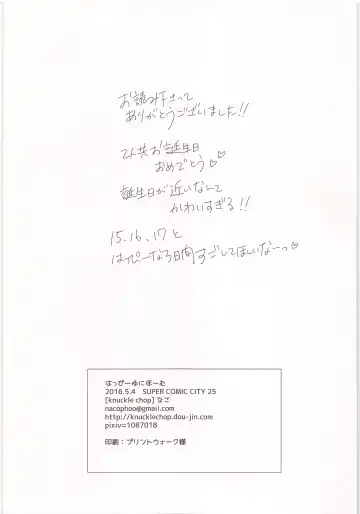 お読み下さって
ありがとうございました!!
2人共お誕生日
おめでとう♡♡
誕生日が近いなんて
かわいすぎる!!
15.16.17と
はっぴーな3日間すごしてほしいなーっ♡
はっぴーゆにばーす
2016.5.4 SUPER COMIC CITY 25
[knuckle chop] なこ
nacophoo@gmail.com
http://knucklechop.dou-jin.com
pixiv=1087018
印刷：プリントウォーク様